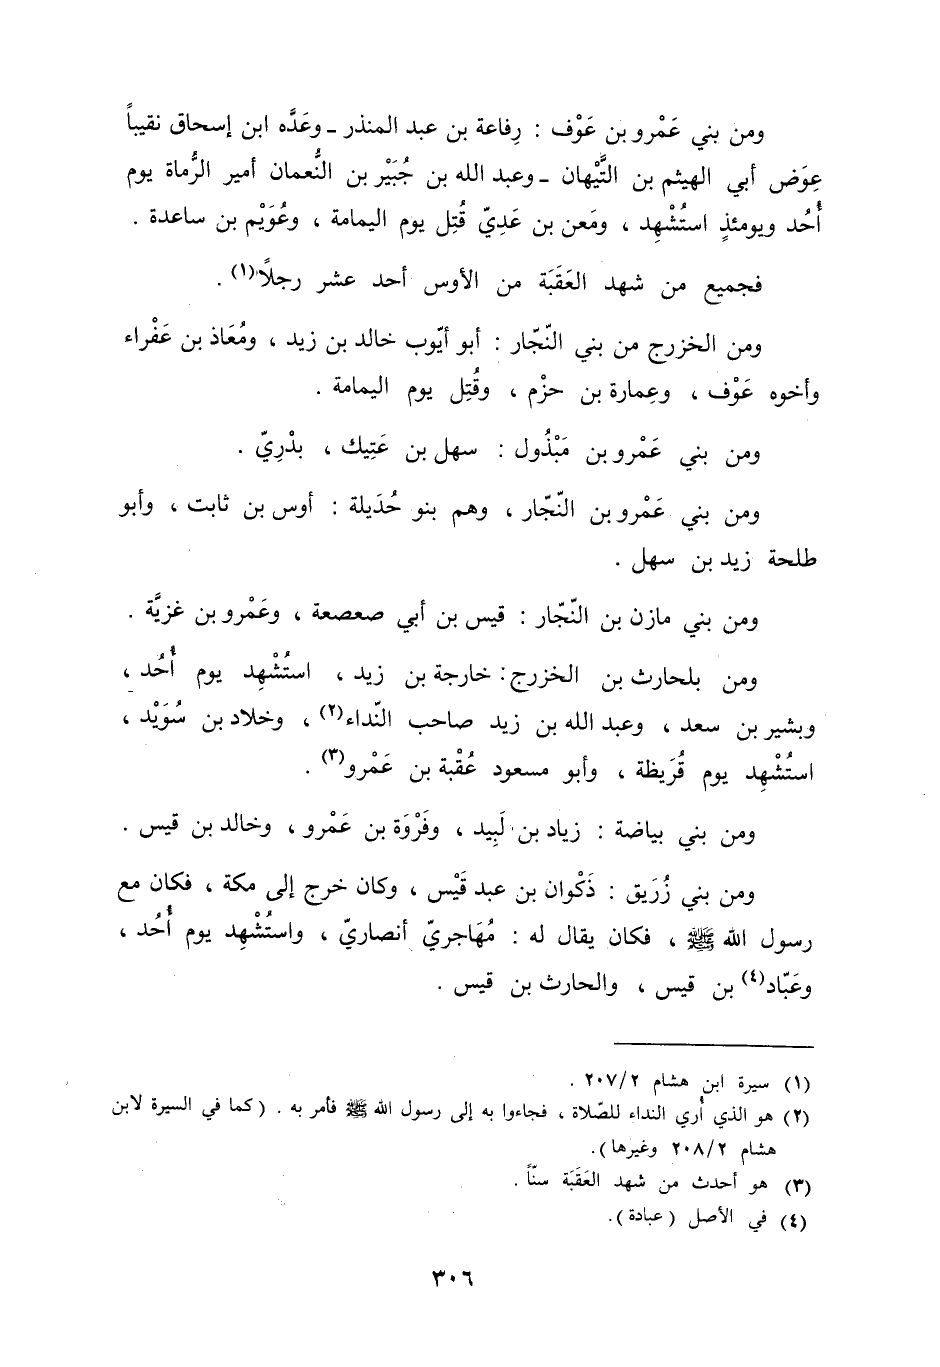 ومن بني عَمْرو بن عَوْف : رِفاعة بن عبد المنذر ـ وعَدَّه ابن إسحاق نقيباً
عِوَض أبي الهيثم بن التَّيْهان ـ وعبد الله بن جُبَيْر بن النُّعمان أمير الرُّماة يوم
أُحُد ويومئذٍ استُشْهِد ، ومَعن بن عَدِيّ قُتِل يوم اليمامة ، وعُوَيْم بن ساعدة .
فجميع من شهد العَقَبَة من الأوس أحد عشر رجلاً(١) .
ومن الخزرج من بني النّجّار : أبو أيّوب خالد بن زيد ، ومُعَاذ بن عَفْراء
وأخوه عَوْف ، وعِمارة بن حزْم ، وقُتِل يوم اليمامة .
ومن بني عَمْرو بن مَبْذُول : سهل بن عَتِيك ، بدْرِيّ .
ومن بني عَمْرو بن النّجّار ، وهم بنو حُدَيلة : أوس بن ثابت ، وأبو
طلحة زيد بن سهل .
ومن بني مازن بن النّجّار : قيس بن أبي صعصعة ، وعَمْرو بن غزيَّة .
ومن بلحارث بن الخزرج : خارجة بن زيد ، استُشْهِد يوم أُحُد ،
وبشير بن سعد ، وعبد الله بن زيد صاحب النّداء(٢) ، وخلاد بن سُوَيْد ،
استُشْهِد يوم قُرَيظة ، وأبو مسعود عُقْبة بن عَمْرو(٣) .
ومن بني بياضة : زياد بن لَبِيد ، وفَرْوَة بن عَمْرو ، وخالد بن قيس .
ومن بني زُرَيق : ذَكْوان بن عبد قَيْس ، وكان خرج إلى مكة ، فكان مع
رسول الله ﷺ ، فكان يقال له : مُهَاجريّ أنصاريّ ، واستُشْهِد يوم أُحُد ،
وعَبّاد(٤) بن قيس ، والحارث بن قيس .
(١) سيرة ابن هشام ٢٠٧/٢ .
(٢) هو الذي أُري النداء للصّلاة ، فجاءوا به إلى رسول الله ﷺ فأمر به . (كما في السيرة لابن
هشام ٢٠٨/٢ وغيرها).
(٣) هو أحدث من شهد العَقَبَة سنّاً .
(٤) في الأصل (عبادة).
٣٠٦